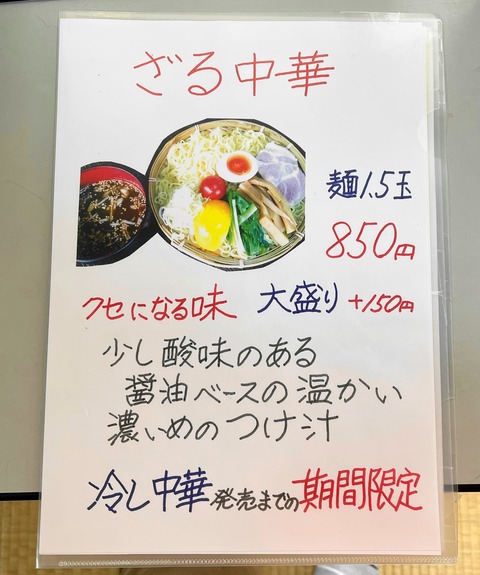 ざる中華
麺1.5玉
850円
クセになる味 大盛り+150円
少し酸味のある
醤油ベースの温かい
濃いめのつけ汁
冷し中華発売までの期間限定